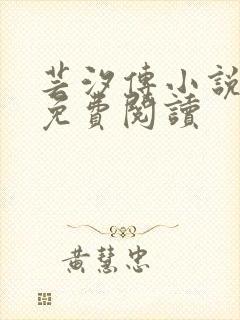 芸汐傳小說
免費閱讀
黃慧忠